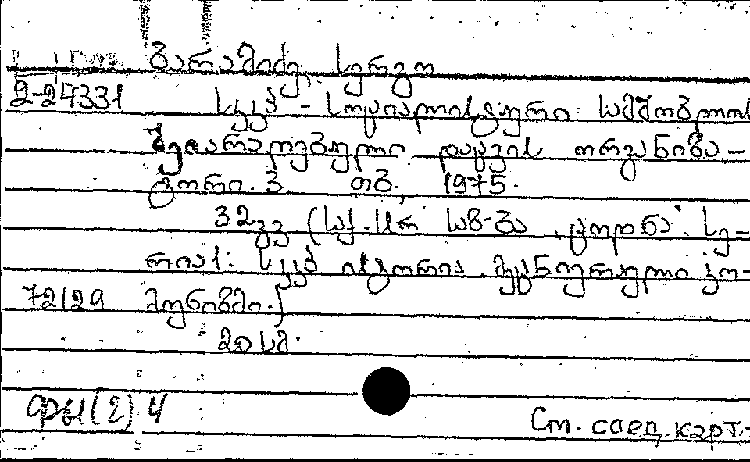 ბარამიძე, სერგო
2-24331 სკკპ - სოციალისტური სამშობლოს
შეიარაღებული დაცვის ორგანიზა-
ტორი. თბ., 1975.
32 გვ (საქ. სსრ საზ-ბა „ცოდნა“. სე-
რია 1: სკკპ ისტორია. მეცნიერული კო-
72129 მუნიზმი.)
20 სმ.
(2) 4
См. след. карт.